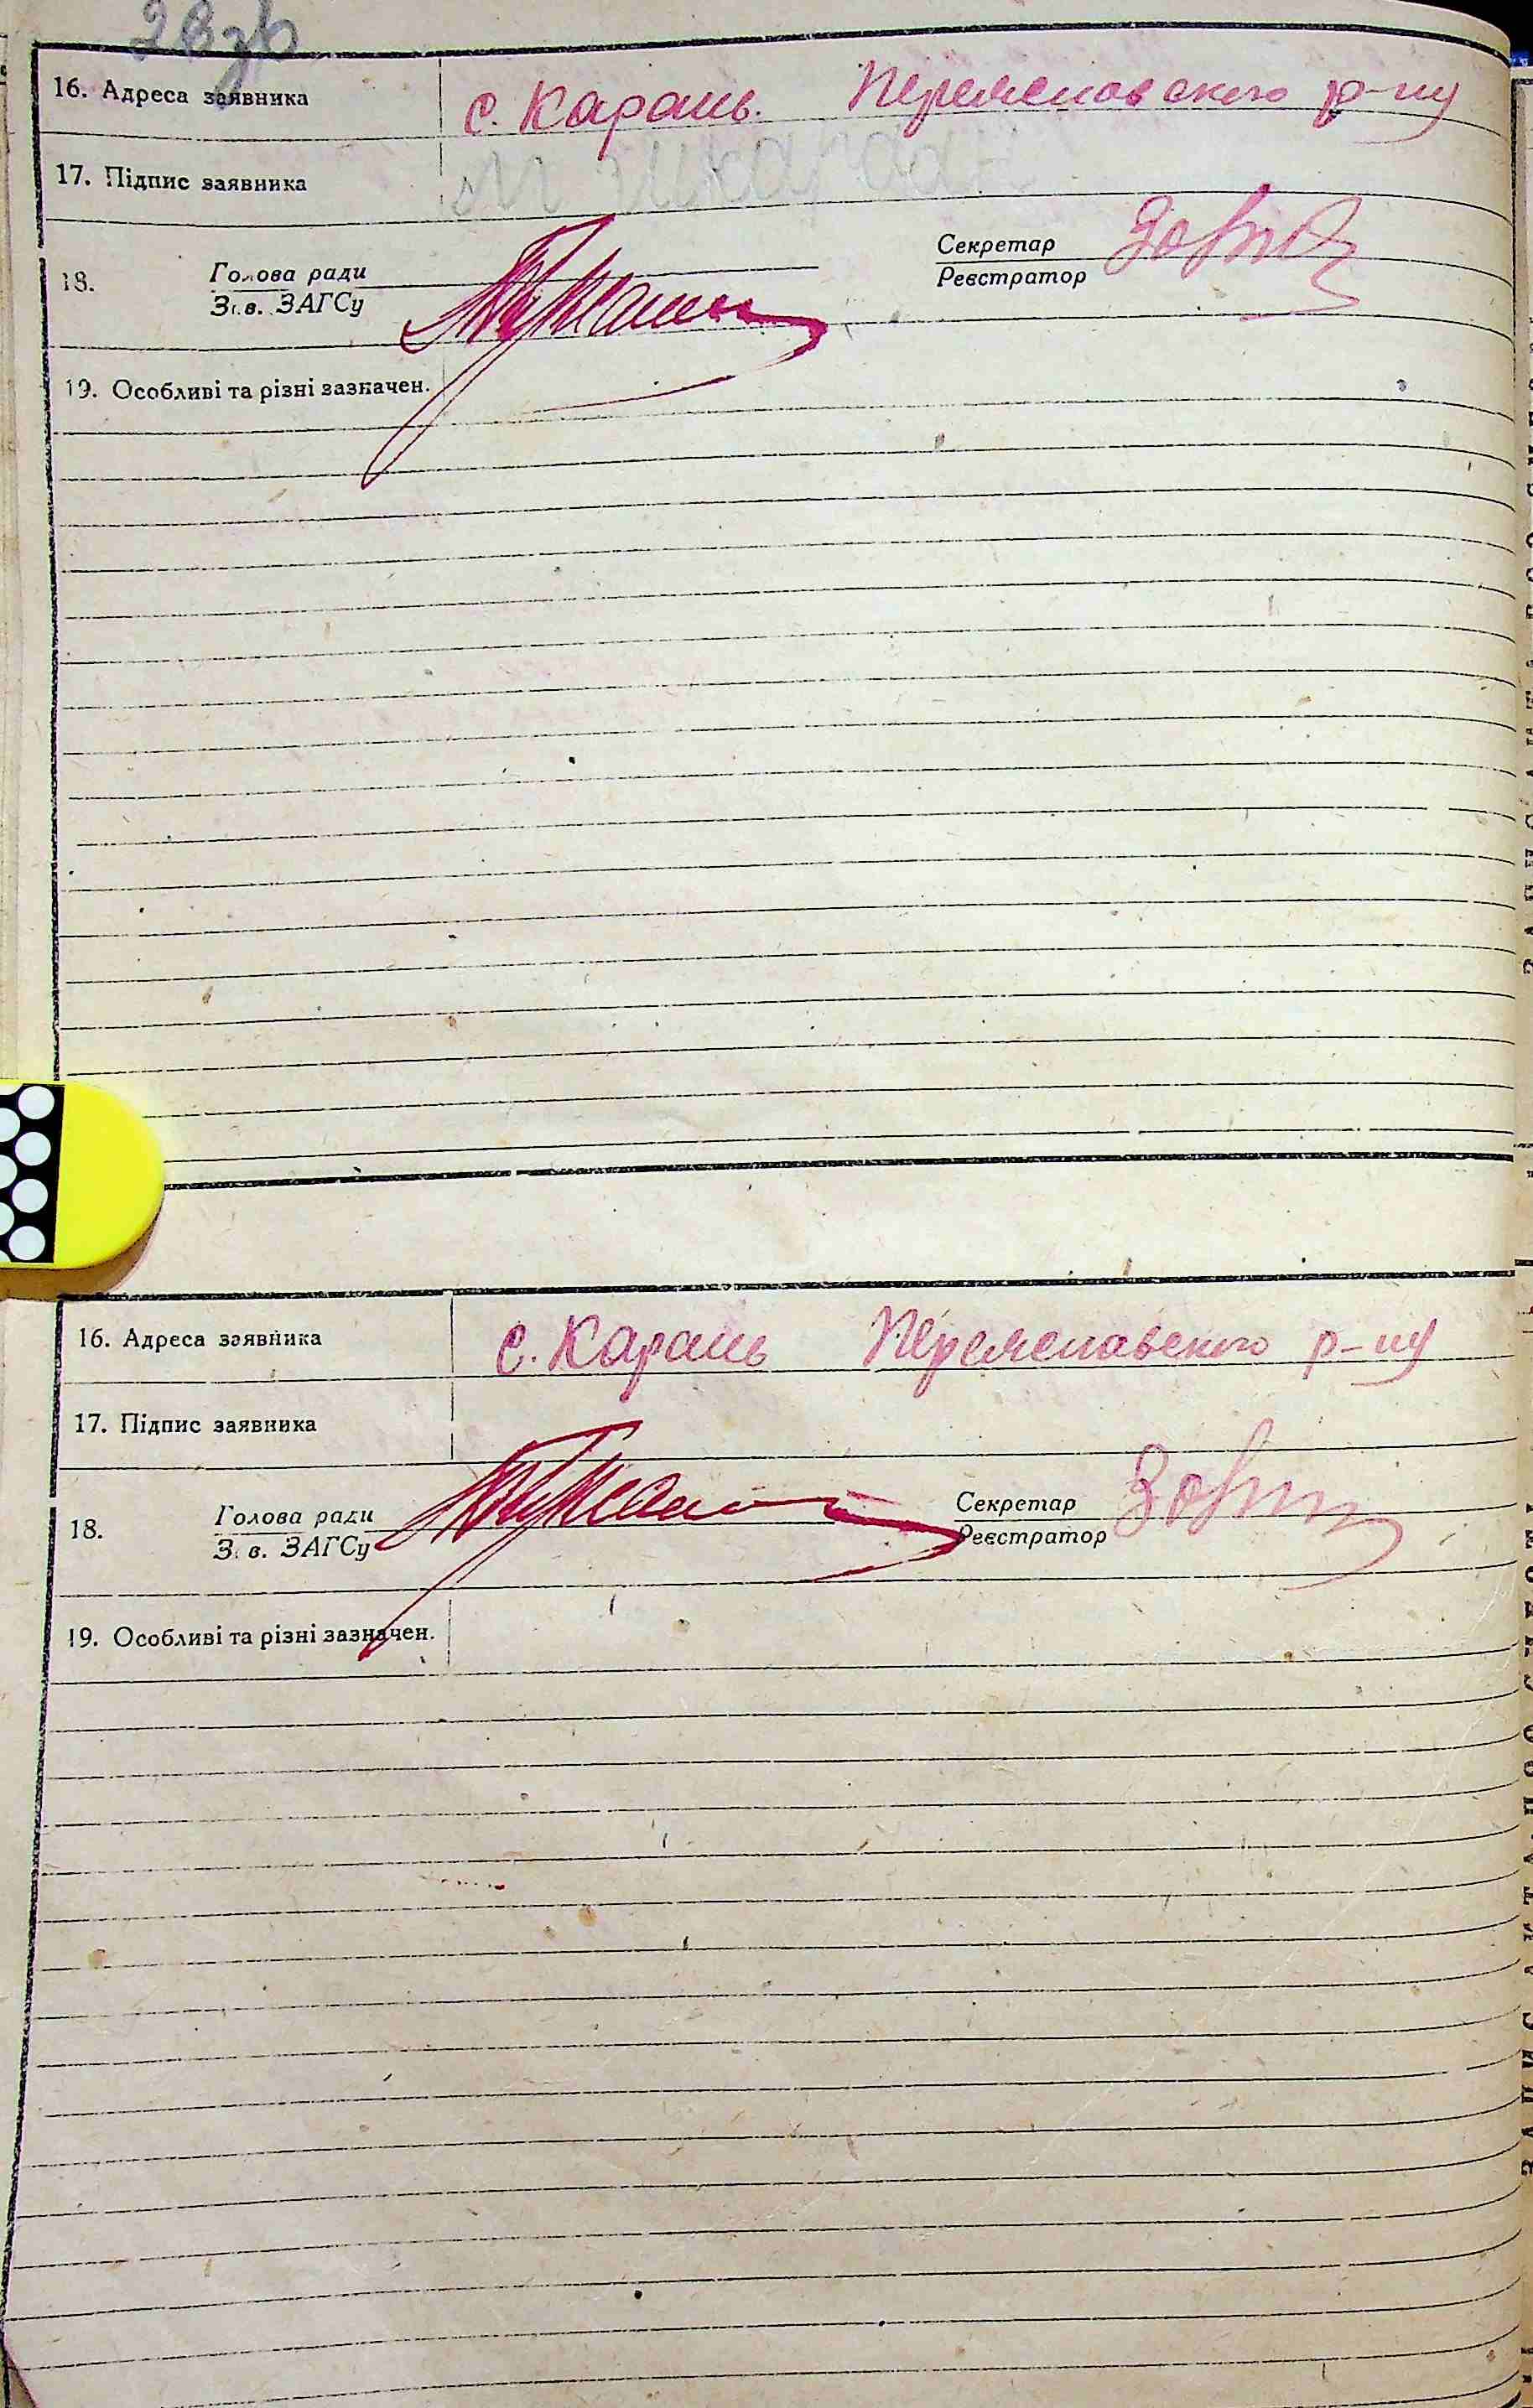 28зв
16. Адреса заявника с. Карань. Переяславского р-ну
17. Підпис заявника
18. Голова ради Секретар
Зав. ЗАГСу Реєстратор
19. Особливі та різні зазначен.
16. Адреса заявника с. Карань Переяславського р-ну
17. Підпис заявника
18. Голова ради Секретар
Зав. ЗАГСу Реєстратор
19. Особливі та різні зазначен.